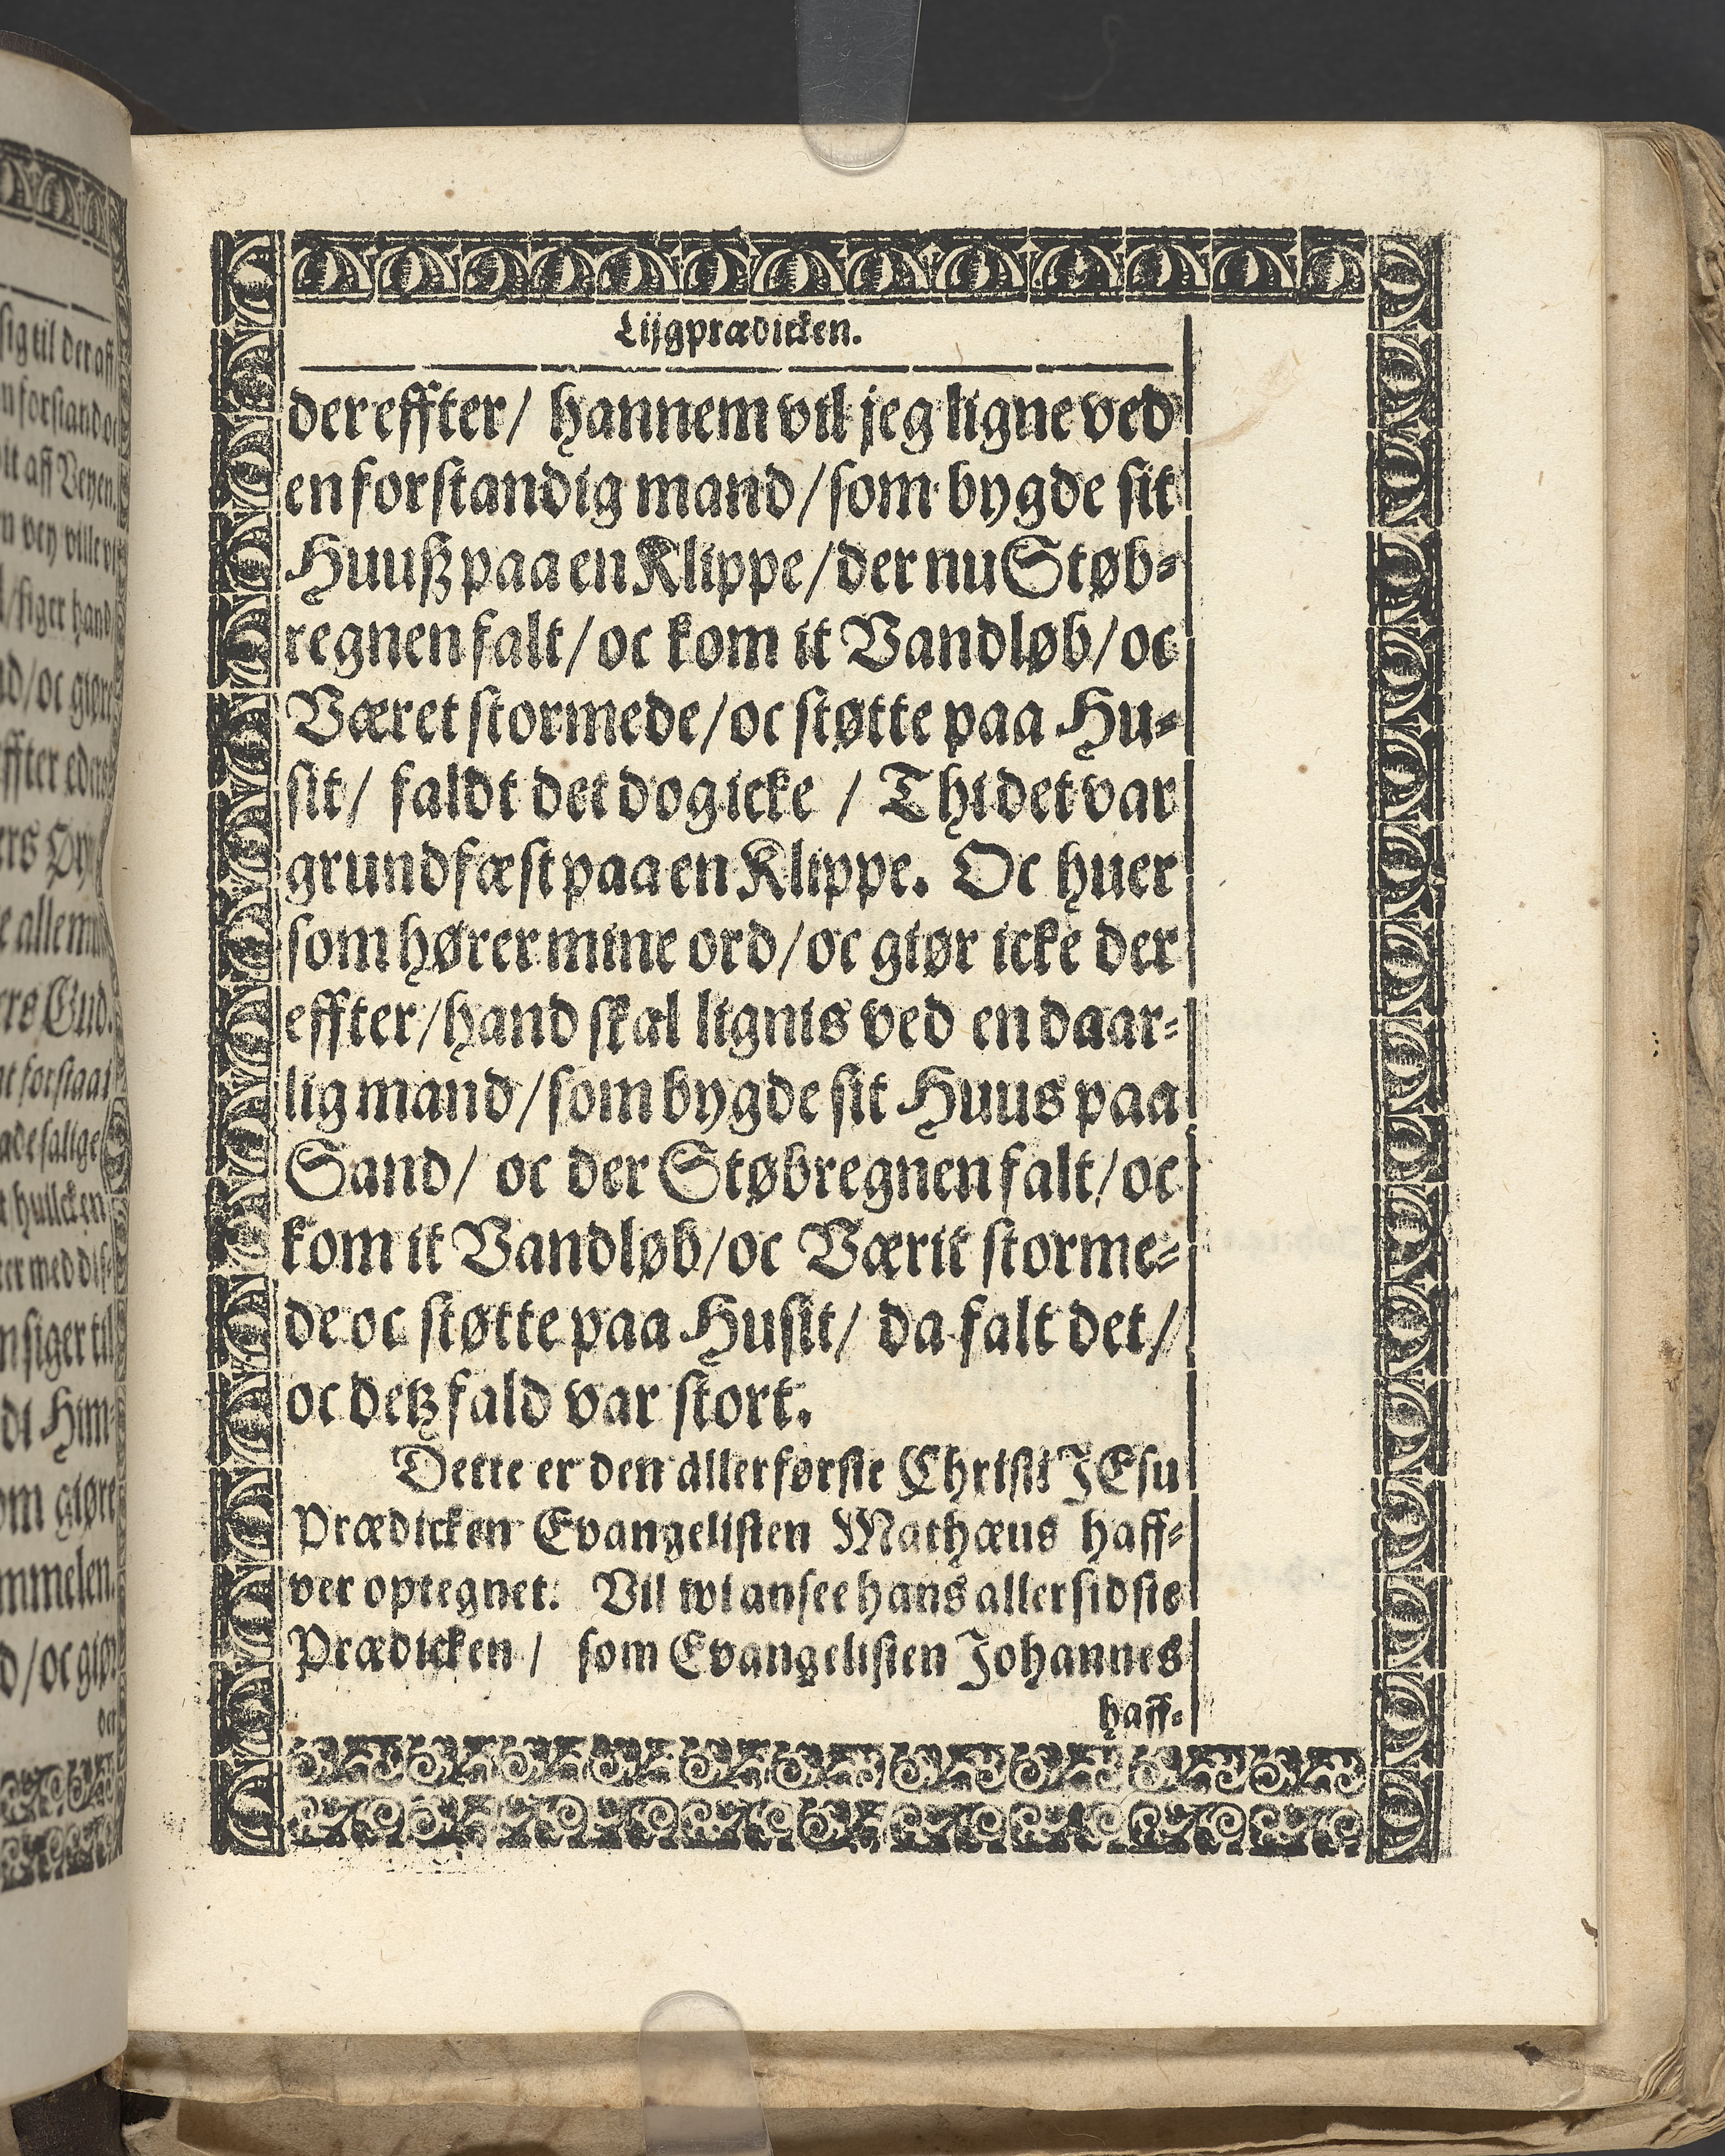 Lijgprædicken.
der effter / hannem vil jeg ligne ved
en forstandig mand / som bygde sit
Huuß paa en Klippe / der nu Støb-
regnen falt / oc kom it Vandløb / oc
Været stormede / oc støtte paa Hu-
sit / faldt det dog icke / Thi det var
grundfæst paa en Klippe. Oc huer
som hører mine ord / oc giør icke der
effter / hand skal lignis ved en daar-
lig mand / som bygde sit Huus paa
Sand / oc der Støbregnen falt / oc
kom it Vandløb / oc Værit storme-
de oc støtte paa Husit / da falt det /
oc detz fald var stort.
Dette er den allerførste Christi JEsu
Prædicken Evangelisten Mathæus haff-
ver optegnet: Vil wi ansee hans allersidste
Prædicken / som Evangelisten Johannes
haff-